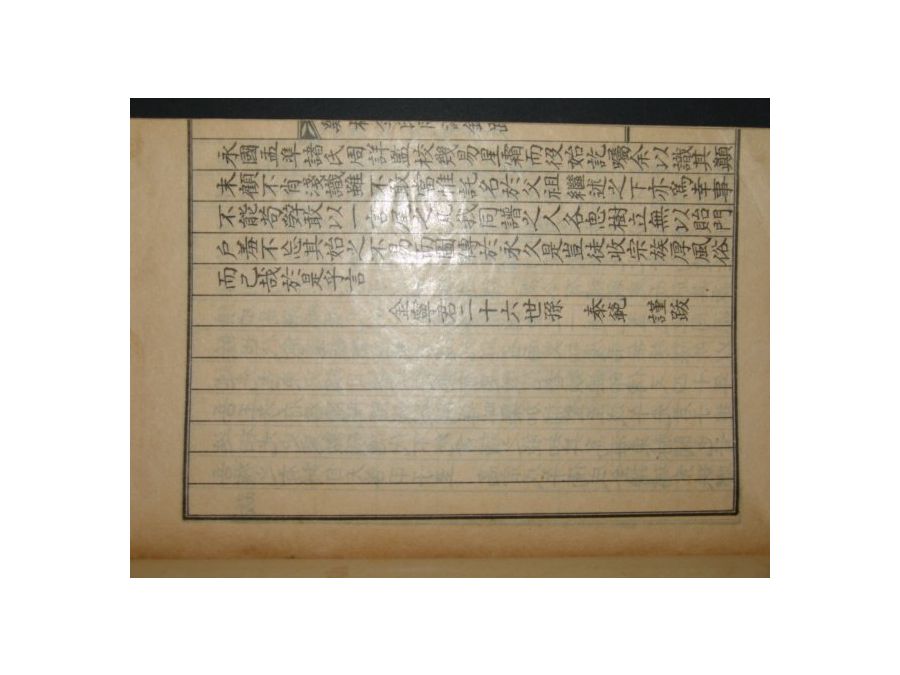 永國孟準諸氏周詳監校幾易星霜而役始訖囑余以識其顚
末顧不肖淺識雖不敢當惟託名於父祖繼述之下亦爲幸事
不能苟辭敢以一言尾之凡我同譜之人各思樹立無以貽門
戶羞不忘其始之不易而圖傳於永久是豈徒收宗族厚風俗
而已哉於是乎言
金寧君二十六世孫 泰範 謹跋